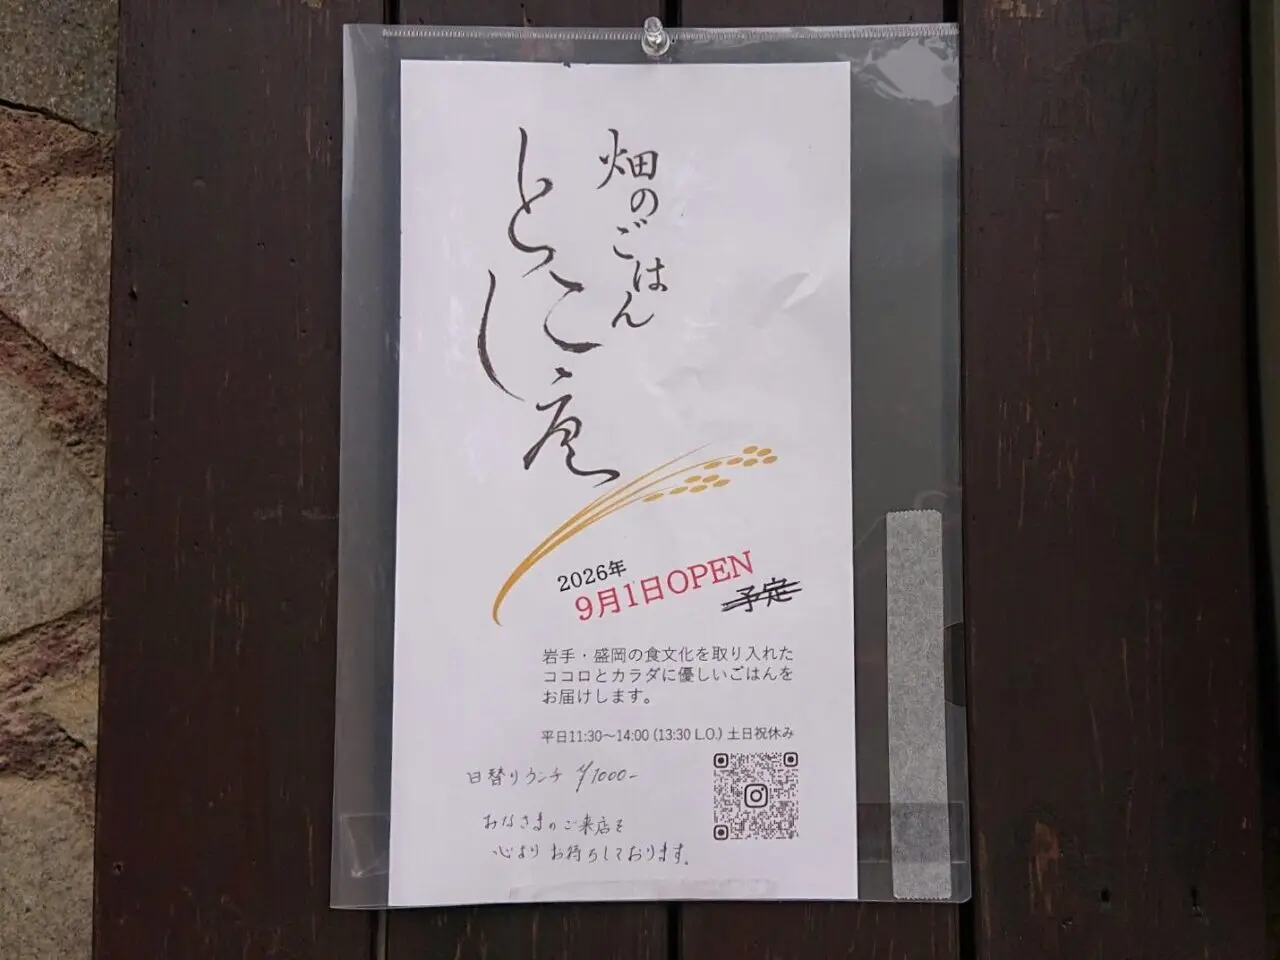 畑のごはん
とこし庵
2026年
9月1日OPEN
予定
岩手・盛岡の食文化を取り入れた
ココロとカラダに優しいごはんを
お届けします。
平日11:30～14:00 (13:30 L.O.) 土日祝休み
日替りランチ ¥1000-
みなさまのご来店を
心よりお待ちしております。